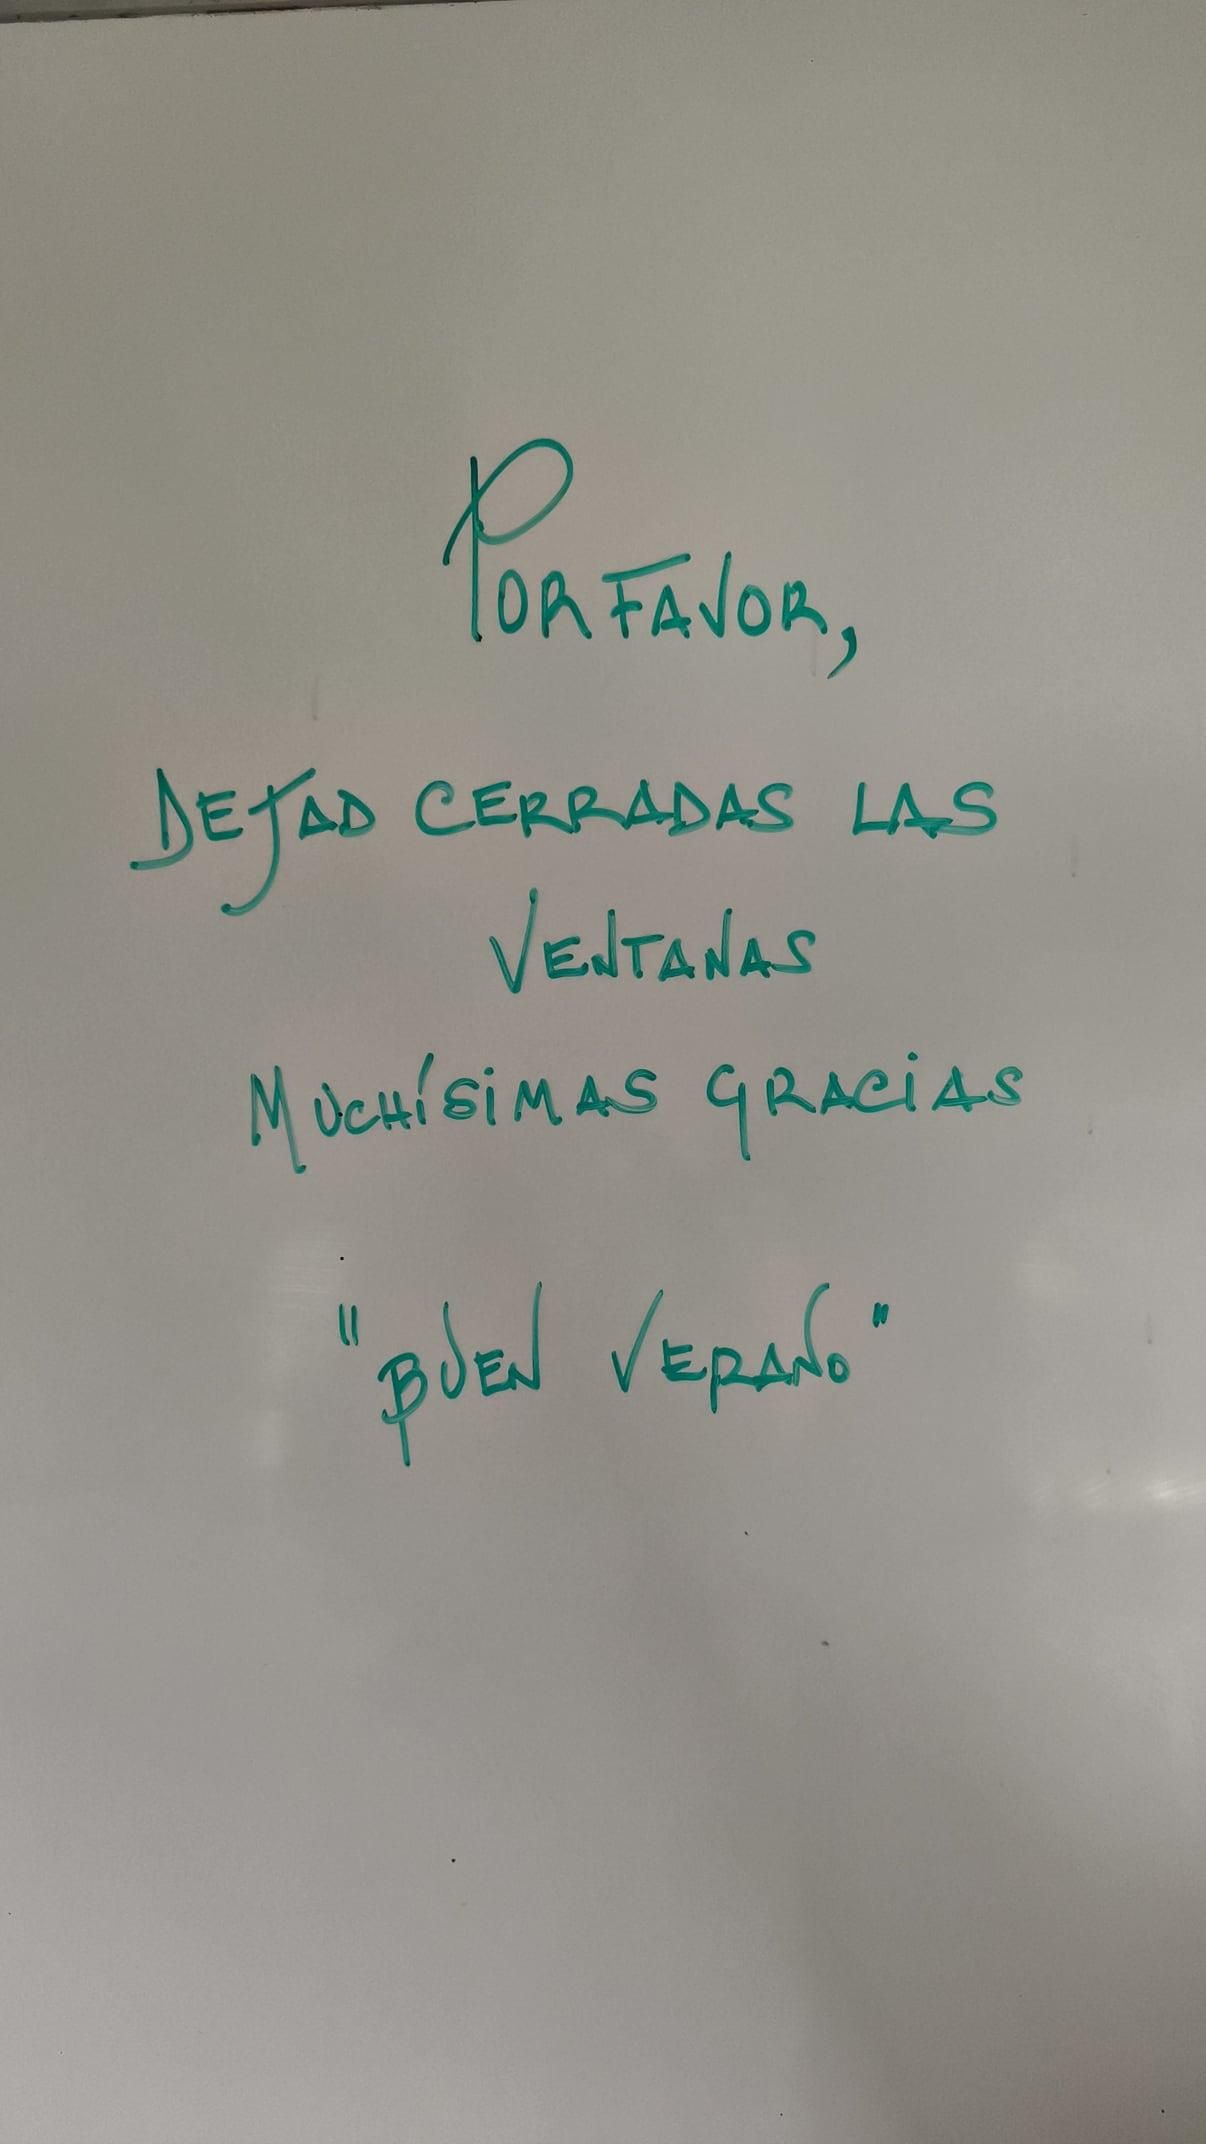 POR FAVOR,
DEJAD CERRADAS LAS
VENTANAS
MUCHÍSIMAS GRACIAS
"BUEN VERANO"